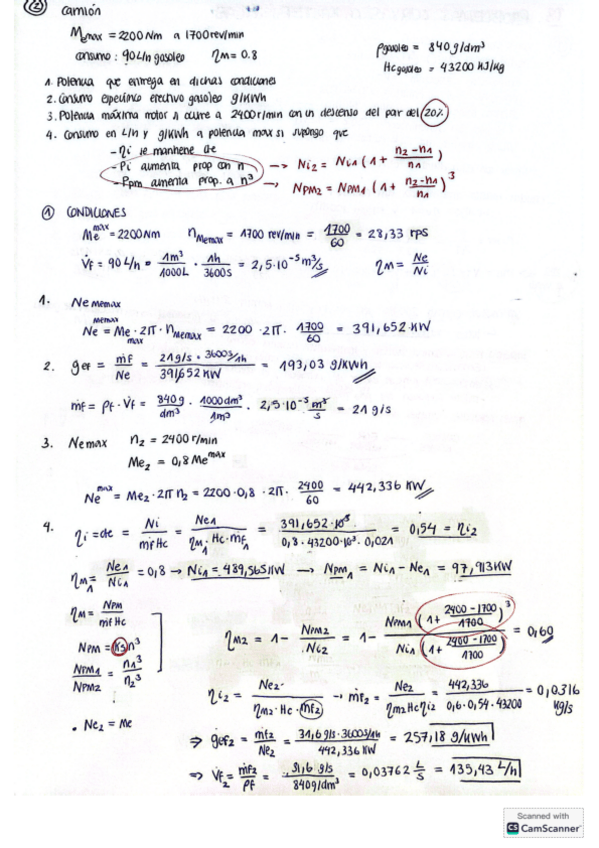 ② camión
Memax = 2200 Nm a 1700 rev/min
consumo : 90 L/h gasoleo ηM = 0.8
ρgasoleo = 840 g/dm³
Hcgasoleo = 43200 KJ/Kg
1. Potencia que entrega en dichas condiciones
2. Consumo específico efectivo gasoleo g/KWh
3. Potencia máxima motor si ocurre a 2400 r/min con un descenso del par del 20%
4. Consumo en L/h y g/KWh a potencia max si supongo que
- ηi se mantiene cte
- Pi aumenta prop con n → Ni2 = Ni1 (1 + (n2-n1)/n1)
- Ppm aumenta prop. a n³ → NPM2 = NPM1 (1 + (n2-n1)/n1)³
① CONDICIONES
Me max = 2200 Nm nMemax = 1700 rev/min = 1700/60 = 28,33 rps
V̇f = 90 L/h · 1m³/1000L · 1h/3600s = 2,5·10⁻⁵ m³/s ηM = Ne/Ni
1. Ne Memax
Ne Memax = Me max · 2π · nMemax = 2200 · 2π · 1700/60 = 391,652 KW
2. gef = ṁf/Ne = 21 g/s · 3600 s/1h / 391,652 KW = 193,03 g/KWh
ṁf = ρf · V̇f = 840 g/dm³ · 1000 dm³/1m³ · 2,5·10⁻⁵ m³/s = 21 g/s
3. Ne max n2 = 2400 r/min
Me2 = 0,8 Me max
Ne max = Me2 · 2π n2 = 2200·0,8 · 2π · 2400/60 = 442,336 KW
4. ηi = cte = Ni/ṁf Hc = Ne1/ηM1 · Hc · ṁf1 = 391,652·10³/0,8·43200·10³·0,021 = 0,54 = ηi2
ηM1 = Ne1/Ni1 = 0,8 → Ni1 = 489,565 KW → NPM1 = Ni1 - Ne1 = 97,913 KW
ηM = NPM/ṁf Hc
NPM = K3 n³
NPM1/NPM2 = n1³/n2³
ηM2 = 1 - NPM2/Ni2 = 1 - NPM1 (1 + (2400-1700)/1700)³ / Ni1 (1 + (2400-1700)/1700) = 0,60
ηi2 = Ne2/ηM2 · Hc · ṁf2 → ṁf2 = Ne2/ηM2 Hc ηi2 = 442,336/0,6·0,54·43200 = 0,0316 Kg/s
· Ne2 = Me
⇒ gef2 = ṁf2/Ne2 = 31,6 g/s · 3600 s/1h / 442,336 KW = 257,18 g/KWh
⇒ V̇f2 = ṁf2/ρf = 31,6 g/s / 840 g/dm³ = 0,03762 L/s = 135,43 L/h
Scanned with
CS CamScanner